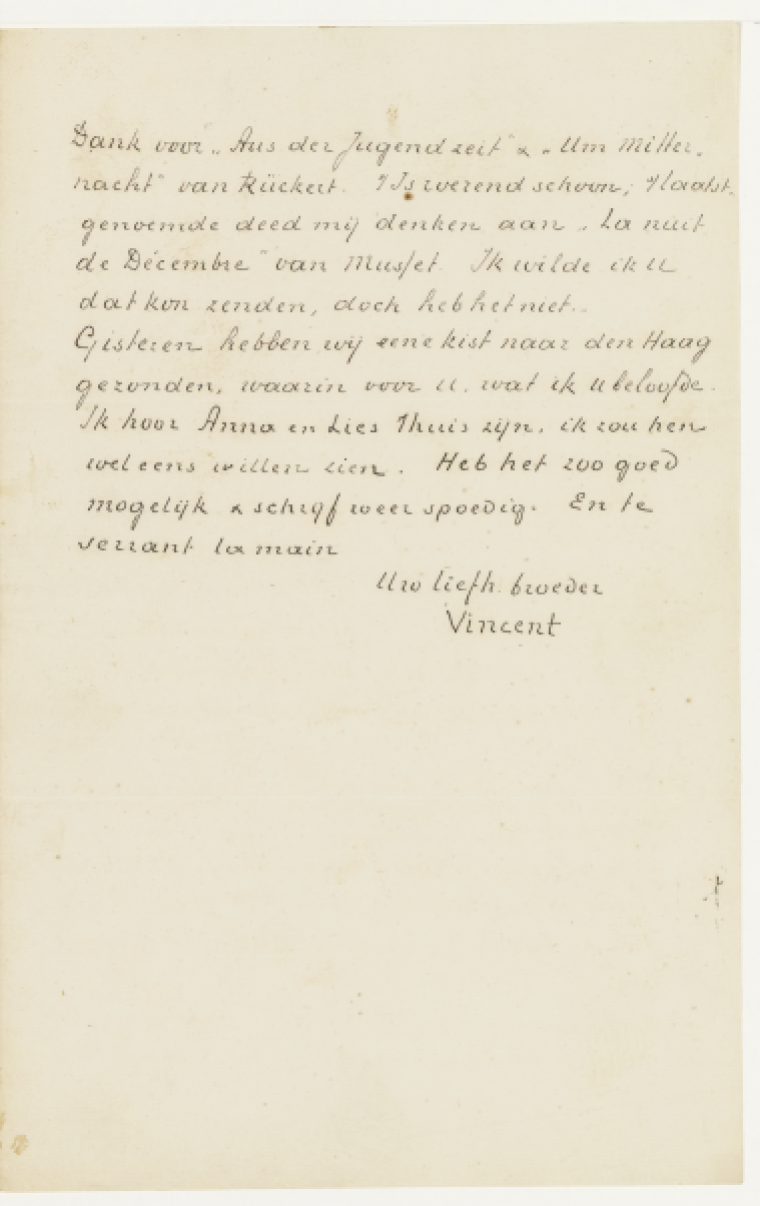 Dank voor „Aus der Jugendzeit” & „Um Mitter-
nacht” van Rückert. 't Is roerend schoon; 't laatst-
genoemde deed mij denken aan „La nuit
de Décembre” van Musset. Ik wilde ik U
dat kon zenden, doch heb het niet.
Gisteren hebben wij eene kist naar den Haag
gezonden, waarin voor U. wat ik U beloofde.
Ik hoor Anna en Lies thuis zijn, ik zou hen
wel eens willen zien. Heb het zoo goed
mogelijk & schrijf weer spoedig. En te
serrant la main
Uw liefh. broeder
Vincent